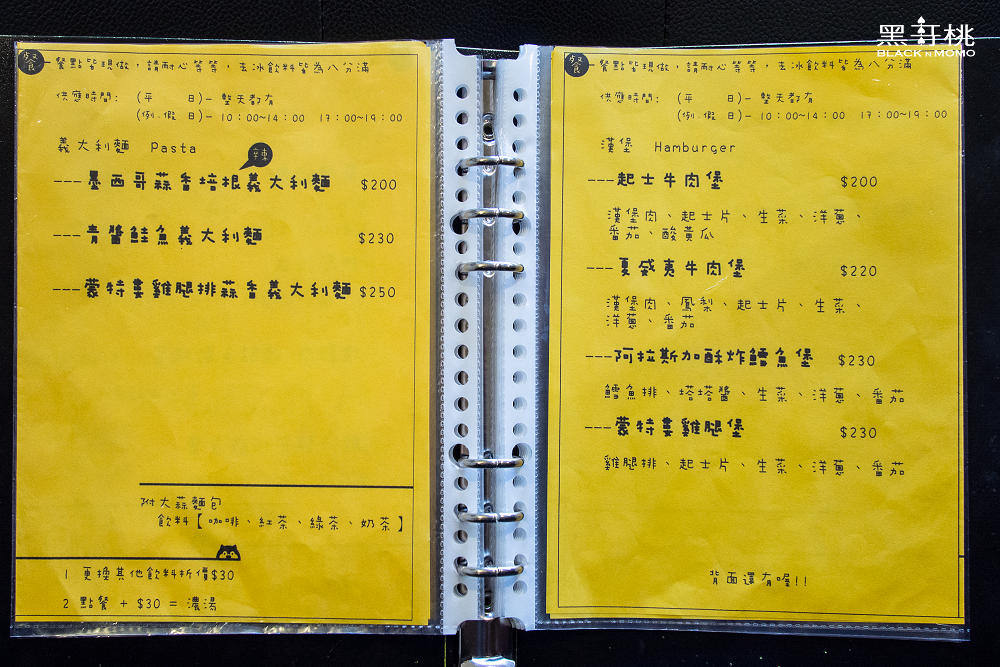 黑軒桃
BLACK N MOMO
餐
餐點皆現做，請耐心等等，去冰飲料皆為八分滿
供應時間： (平　　日)- 整天都有
(例.假 日)- 10：00~14：00　17：00~19：00
義大利麵 Pasta
辣
---墨西哥蒜香培根義大利麵 $200
---青醬鮭魚義大利麵 $230
---蒙特婁雞腿排蒜香義大利麵 $250
附大蒜麵包
飲料【咖啡、紅茶、綠茶、奶茶】
1 更換其他飲料折價$30
2 點餐 + $30 = 濃湯
餐
餐點皆現做，請耐心等等，去冰飲料皆為八分滿
供應時間： (平　　日)- 整天都有
(例.假 日)- 10：00~14：00　17：00~19：00
漢堡 Hamburger
---起士牛肉堡 $200
漢堡肉、起士片、生菜、洋蔥、
番茄、酸黃瓜
---夏威夷牛肉堡 $220
漢堡肉、鳳梨、起士片、生菜、
洋蔥、番茄
---阿拉斯加酥炸鱈魚堡 $230
鱈魚排、塔塔醬、生菜、洋蔥、番茄
---蒙特婁雞腿堡 $230
雞腿排、起士片、生菜、洋蔥、番茄
背面還有喔!!